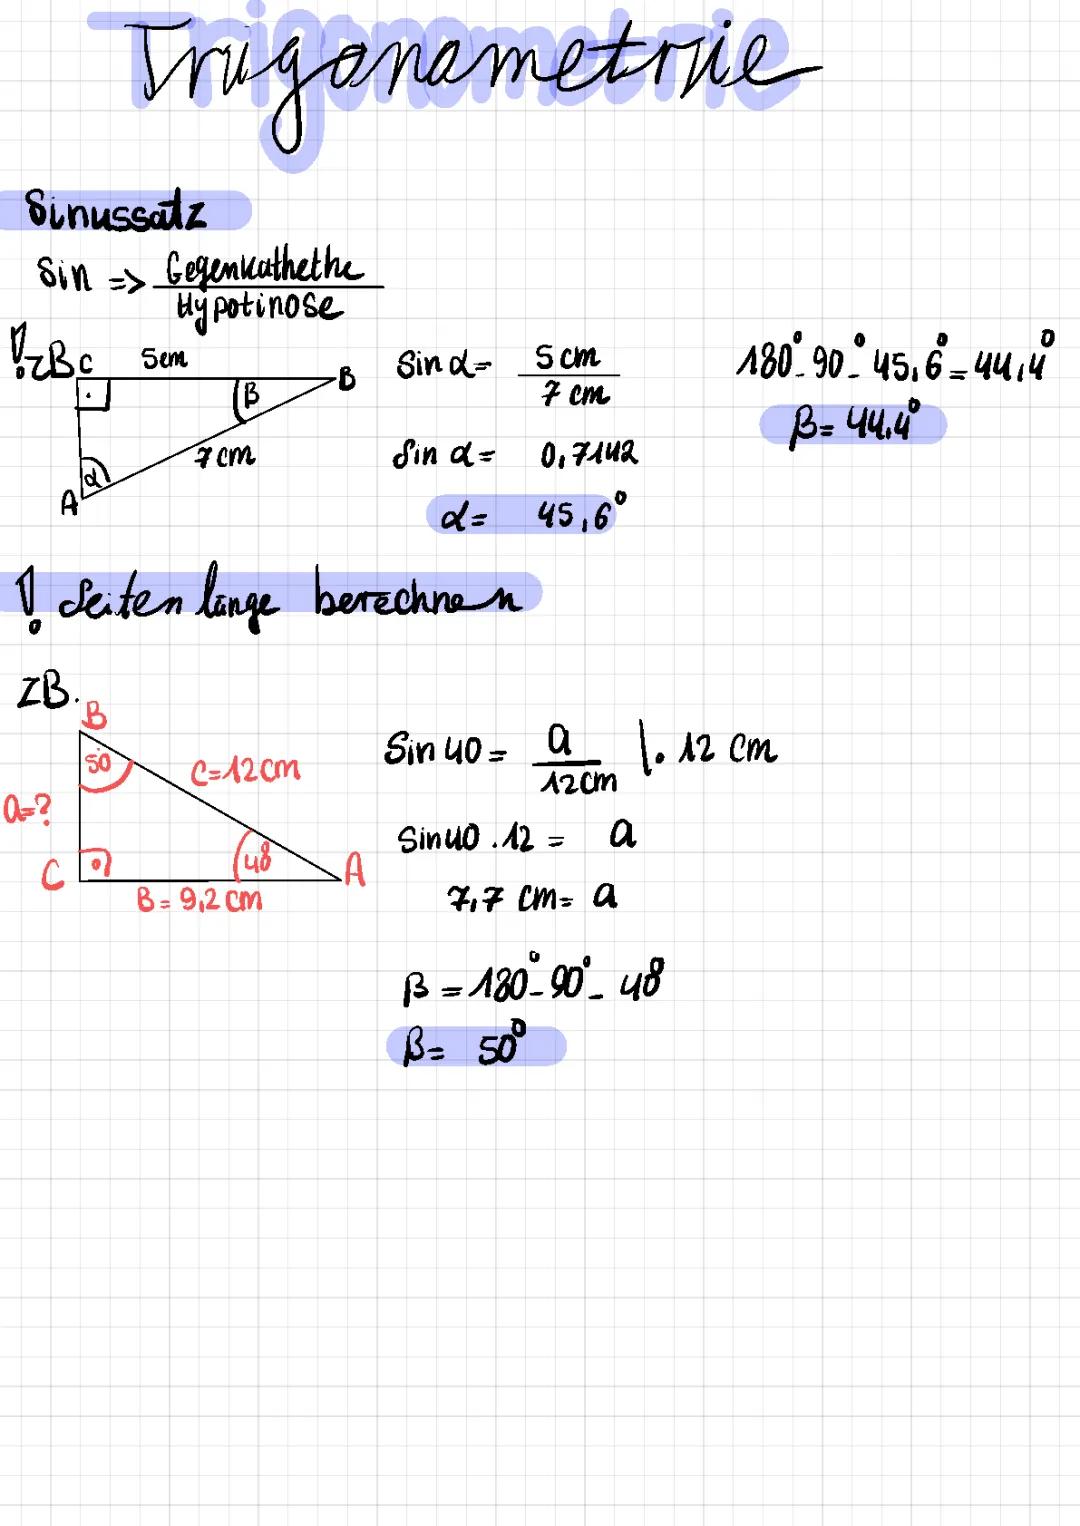 Trigonometrie
Sinussatz
Sin => Gegenkathethe
Hypotinose
! zB C 5cm B
β
7 cm
α
A
Sin α = 5 cm
7 cm
Sin α = 0,7142
α = 45,6°
180°- 90°- 45,6° = 44,4°
β = 44,4°
! Seiten länge berechnen
ZB.
B
50
a=?
C=12cm
C 48 A
B = 9,2 cm
Sin 40 = a | · 12 cm
12cm
Sin 40 · 12 = a
7,7 cm = a
β = 180°- 90°- 48
β = 50°